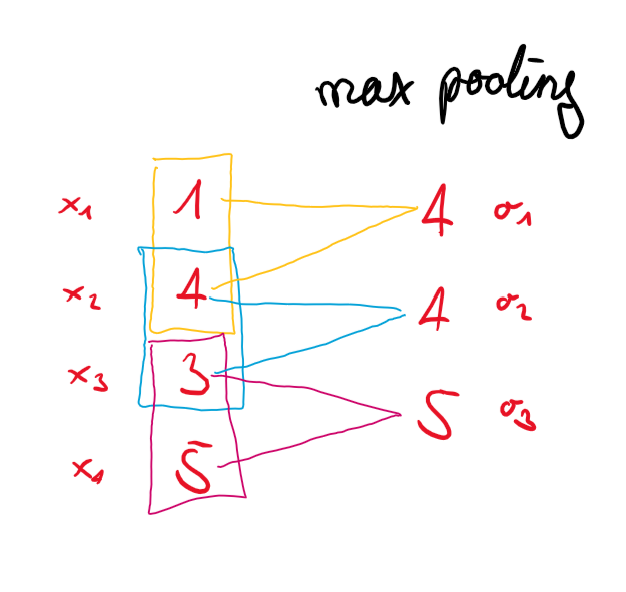 max pooling
x₁ 1 4 σ₁
x₂ 4 4 σ₂
x₃ 3 5 σ₃
x₁ 5